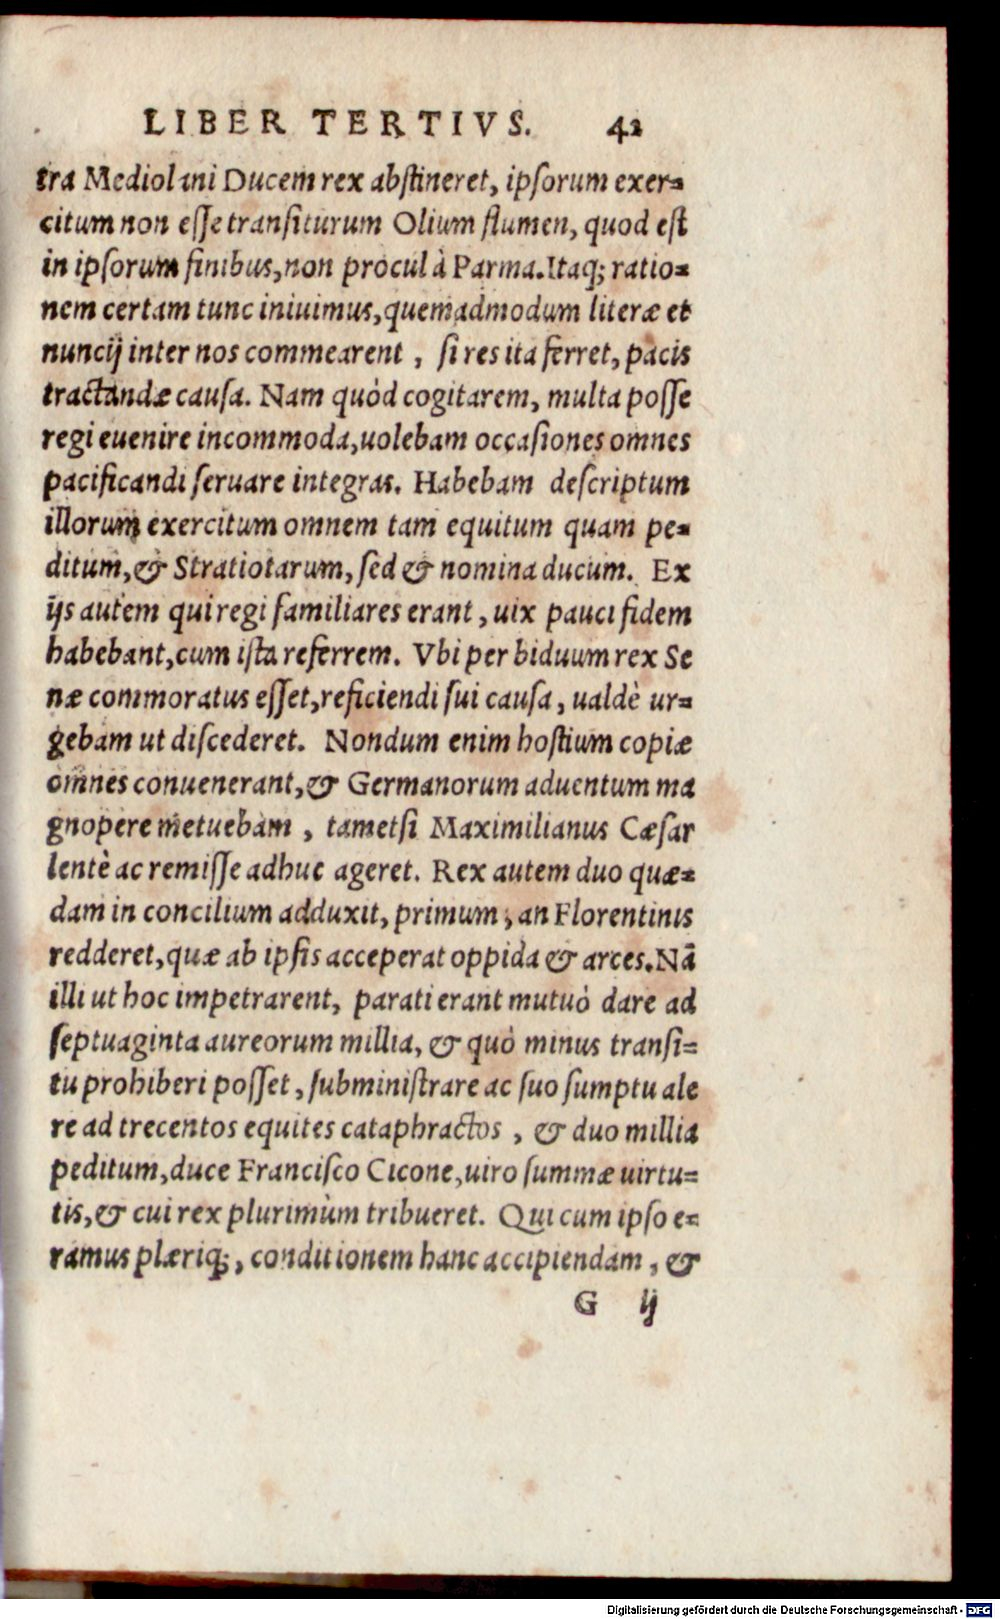 LIBER TERTIVS. 42
tra Mediolani Ducem rex abstineret, ipsorum exer=
citum non esse transiturum Olium flumen, quod est
in ipsorum finibus, non procul à Parma. Itaq; ratio=
nem certam tunc iniuimus, quemadmodum literæ et
nuncij inter nos commearent, si res ita ferret, pacis
tractandæ causa. Nam quòd cogitarem, multa posse
regi euenire incommoda, uolebam occasiones omnes
pacificandi seruare integras. Habebam descriptum
illorum exercitum omnem tam equitum quam pe=
ditum, & Stratiotarum, sed & nomina ducum. Ex
ijs autem qui regi familiares erant, uix pauci fidem
habebant, cum ista referrem. Vbi per biduum rex Se
næ commoratus esset, reficiendi sui causa, ualdè ur=
gebam ut discederet. Nondum enim hostium copiæ
omnes conuenerant, & Germanorum aduentum ma
gnopere metuebam, tametsi Maximilianus Cæsar
lentè ac remisse adhuc ageret. Rex autem duo quæ=
dam in concilium adduxit, primum, an Florentinis
redderet, quæ ab ipsis acceperat oppida & arces. Nã
illi ut hoc impetrarent, parati erant mutuò dare ad
septuaginta aureorum millia, & quò minus transi=
tu prohiberi posset, subministrare ac suo sumptu ale
re ad trecentos equites cataphractos, & duo millia
peditum, duce Francisco Cicone, uiro summæ uirtu=
tis, & cui rex plurimùm tribueret. Qui cum ipso e=
ramus plæriq;, conditionem hanc accipiendam, &
G ij
Digitalisierung gefördert durch die Deutsche Forschungsgemeinschaft - DFG